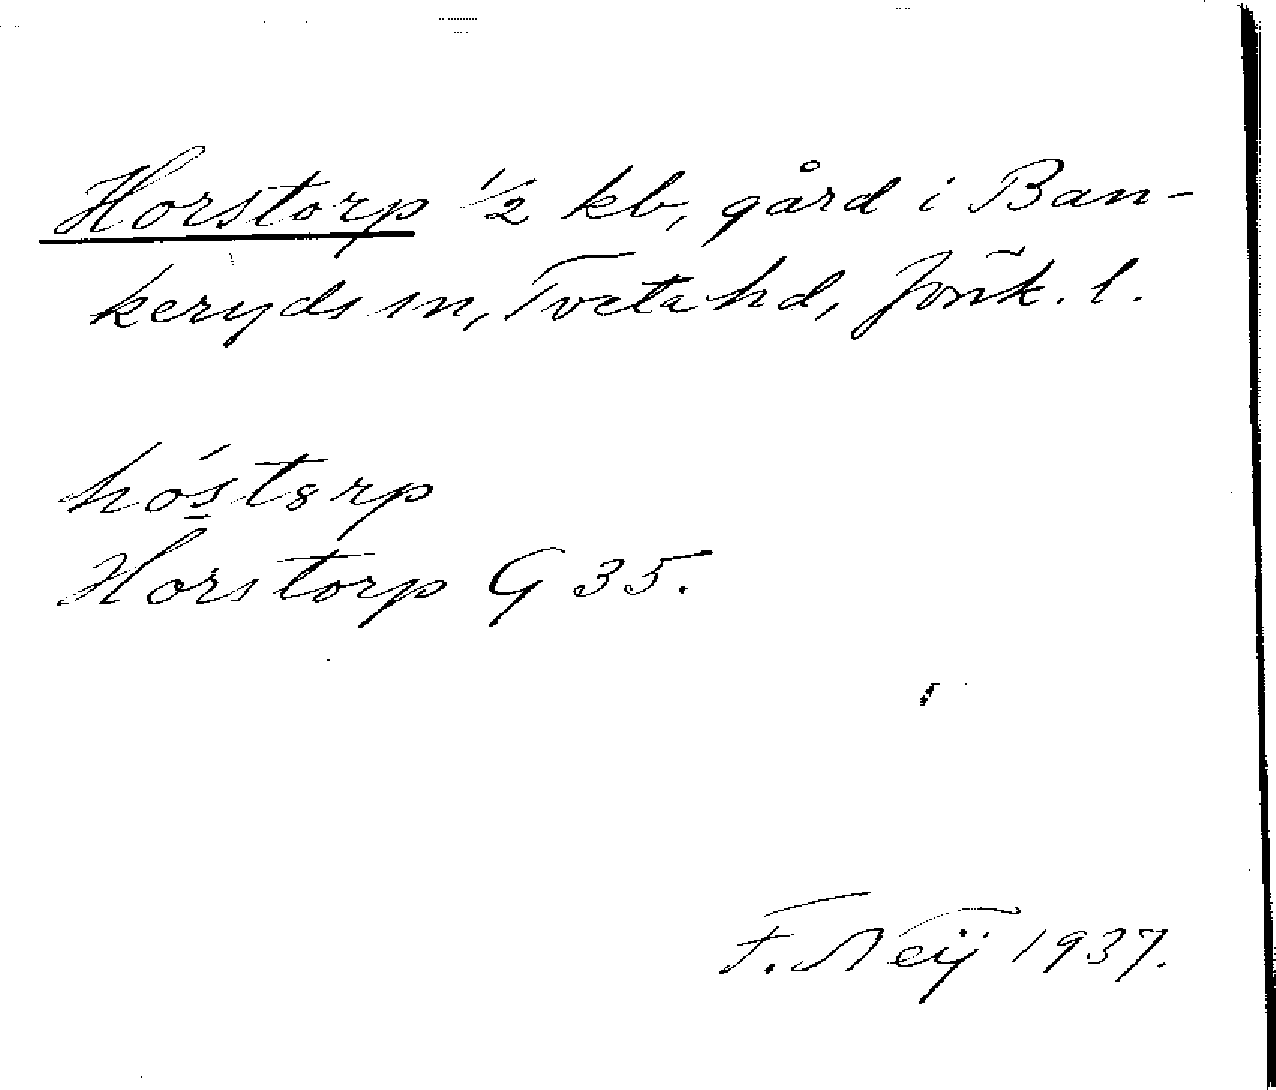 Horstorp 1/2 kb, gård i Ban-
keryds sn, Tveta hd, Jönk. l.
hós̱tɞrp
Horstorp G 35.
F. Neij 1937.